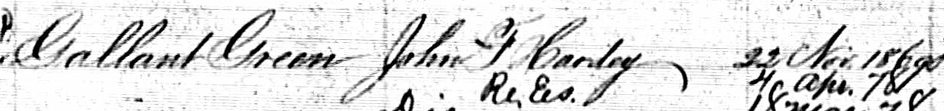 Gallant Green John F Hardy 22 Nov. 1869
Re. Es. 4 Apr. 78
Dis 18 Mar. 78